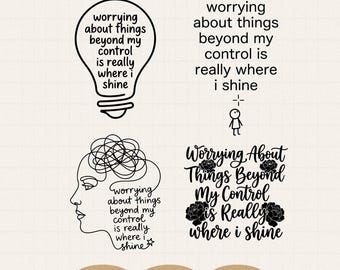 worrying
about things
beyond my
control
is really
where i
shine
worrying
about things
beyond my
control is
really where
i shine
worrying
about things
beyond my
control
is really
where i
shine
Worrying About
Things Beyond
My Control
is Really
where i shine